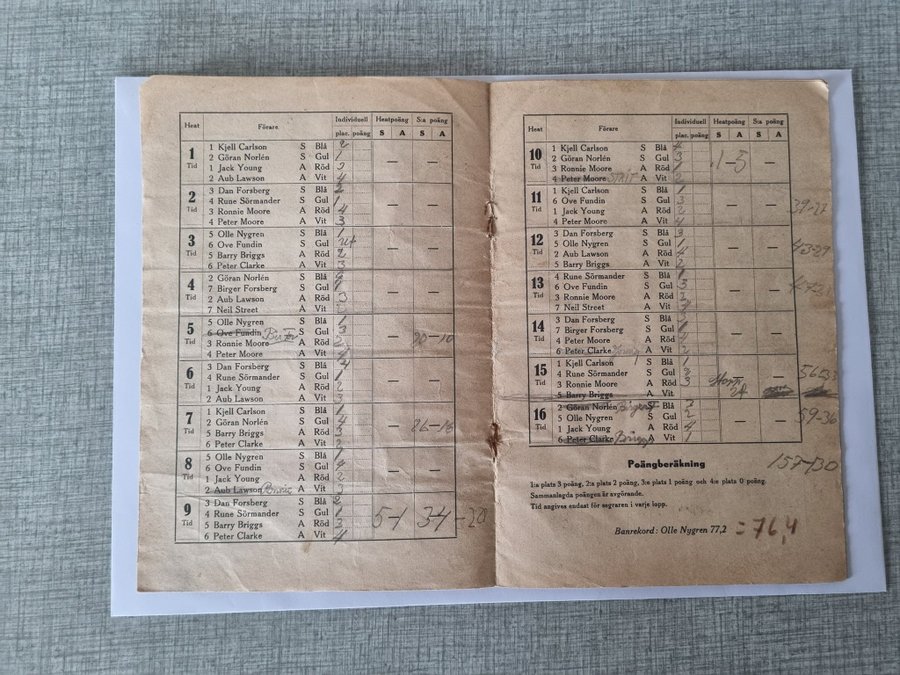 Heat Förare Individuell Heatpoäng S:a poäng
plac. poäng S A S A
1 Tid
1 Kjell Carlson S Blå 2
2 Göran Norlén S Gul 1
1 Jack Young A Röd 3
2 Aub Lawson A Vit 4
2 Tid
3 Dan Forsberg S Blå 2
4 Rune Sörmander S Gul 1
3 Ronnie Moore A Röd 4
4 Peter Moore A Vit 3
3 Tid
5 Olle Nygren S Blå 1
6 Ove Fundin S Gul
5 Barry Briggs A Röd 2
6 Peter Clarke A Vit 3
4 Tid
2 Göran Norlén S Blå
7 Birger Forsberg S Gul 1
2 Aub Lawson A Röd 3
7 Neil Street A Vit
5 Tid
5 Olle Nygren S Blå 1
6 Ove Fundin S Gul 3
3 Ronnie Moore A Röd 2 20-10
4 Peter Moore A Vit 4
6 Tid
3 Dan Forsberg S Blå 4
4 Rune Sörmander S Gul 1
1 Jack Young A Röd 2
2 Aub Lawson A Vit 3
7 Tid
1 Kjell Carlson S Blå 1
2 Göran Norlén S Gul 4
5 Barry Briggs A Röd 3 26-16
6 Peter Clarke A Vit 2
8 Tid
5 Olle Nygren S Blå 1
6 Ove Fundin S Gul 4
1 Jack Young A Röd 2
2 Aub Lawson A Vit 3
9 Tid
3 Dan Forsberg S Blå 2
4 Rune Sörmander S Gul 1
5 Barry Briggs A Röd 3 5-1 34-20
6 Peter Clarke A Vit 4
Heat Förare Individuell Heatpoäng S:a poäng
plac. poäng S A S A
10 Tid
1 Kjell Carlson S Blå 4
2 Göran Norlén S Gul 3
3 Ronnie Moore A Röd 1 1-5
4 Peter Moore A Vit 2
11 Tid
1 Kjell Carlson S Blå 1
6 Ove Fundin S Gul 3
1 Jack Young A Röd 2
4 Peter Moore A Vit 4
12 Tid
3 Dan Forsberg S Blå 3
5 Olle Nygren S Gul 1
2 Aub Lawson A Röd 4 43-29
5 Barry Briggs A Vit 2
13 Tid
4 Rune Sörmander S Blå 1
6 Ove Fundin S Gul 3
3 Ronnie Moore A Röd 2
7 Neil Street A Vit
14 Tid
3 Dan Forsberg S Blå
7 Birger Forsberg S Gul 1
2 Aub Lawson A Röd 4
6 Peter Clarke A Vit 2
15 Tid
1 Kjell Carlson S Blå 1
4 Rune Sörmander S Gul
3 Ronnie Moore A Röd 3 56-33
5 Barry Briggs A Vit
16 Tid
2 Göran Norlén Birger S Blå 3
5 Olle Nygren S Gul 2 59-36
1 Jack Young A Röd 4
6 Peter Clarke Briggs A Vit 1
Poängberäkning
1:a plats 3 poäng, 2:a plats 2 poäng, 3:e plats 1 poäng och 4:e plats 0 poäng.
Sammanlagda poängen är avgörande.
Tid angives endast för segraren i varje lopp.
Banrekord: Olle Nygren 77,2 = 76,4